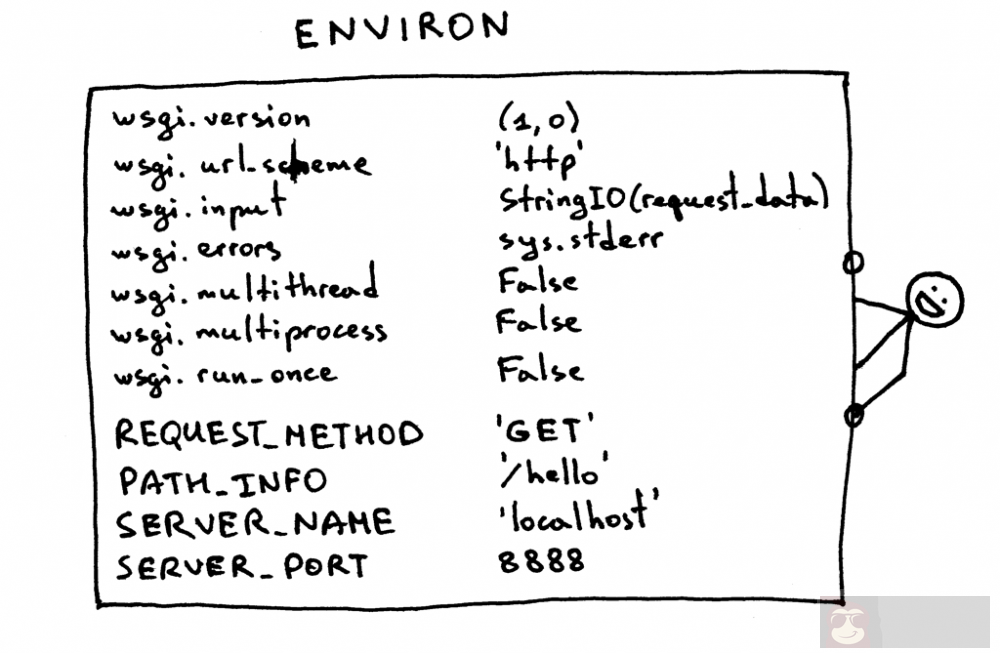 ENVIRON
wsgi.version (1,0)
wsgi.url_scheme 'http'
wsgi.input StringIO(request_data)
wsgi.errors sys.stderr
wsgi.multithread False
wsgi.multiprocess False
wsgi.run_once False
REQUEST_METHOD 'GET'
PATH_INFO '/hello'
SERVER_NAME 'localhost'
SERVER_PORT 8888